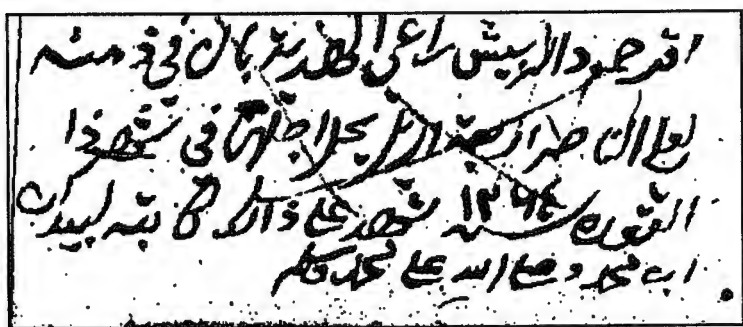 اقر حمود الربيش راعي الهديه بان في ذمته
لعلي الناصر اربعة اريل يحل اجلهن في شهر ذا
القعدة سنة ١٢٩٤ شهد على ذالك كاتبه
ابن محمد وصلى الله على محمد وسلم